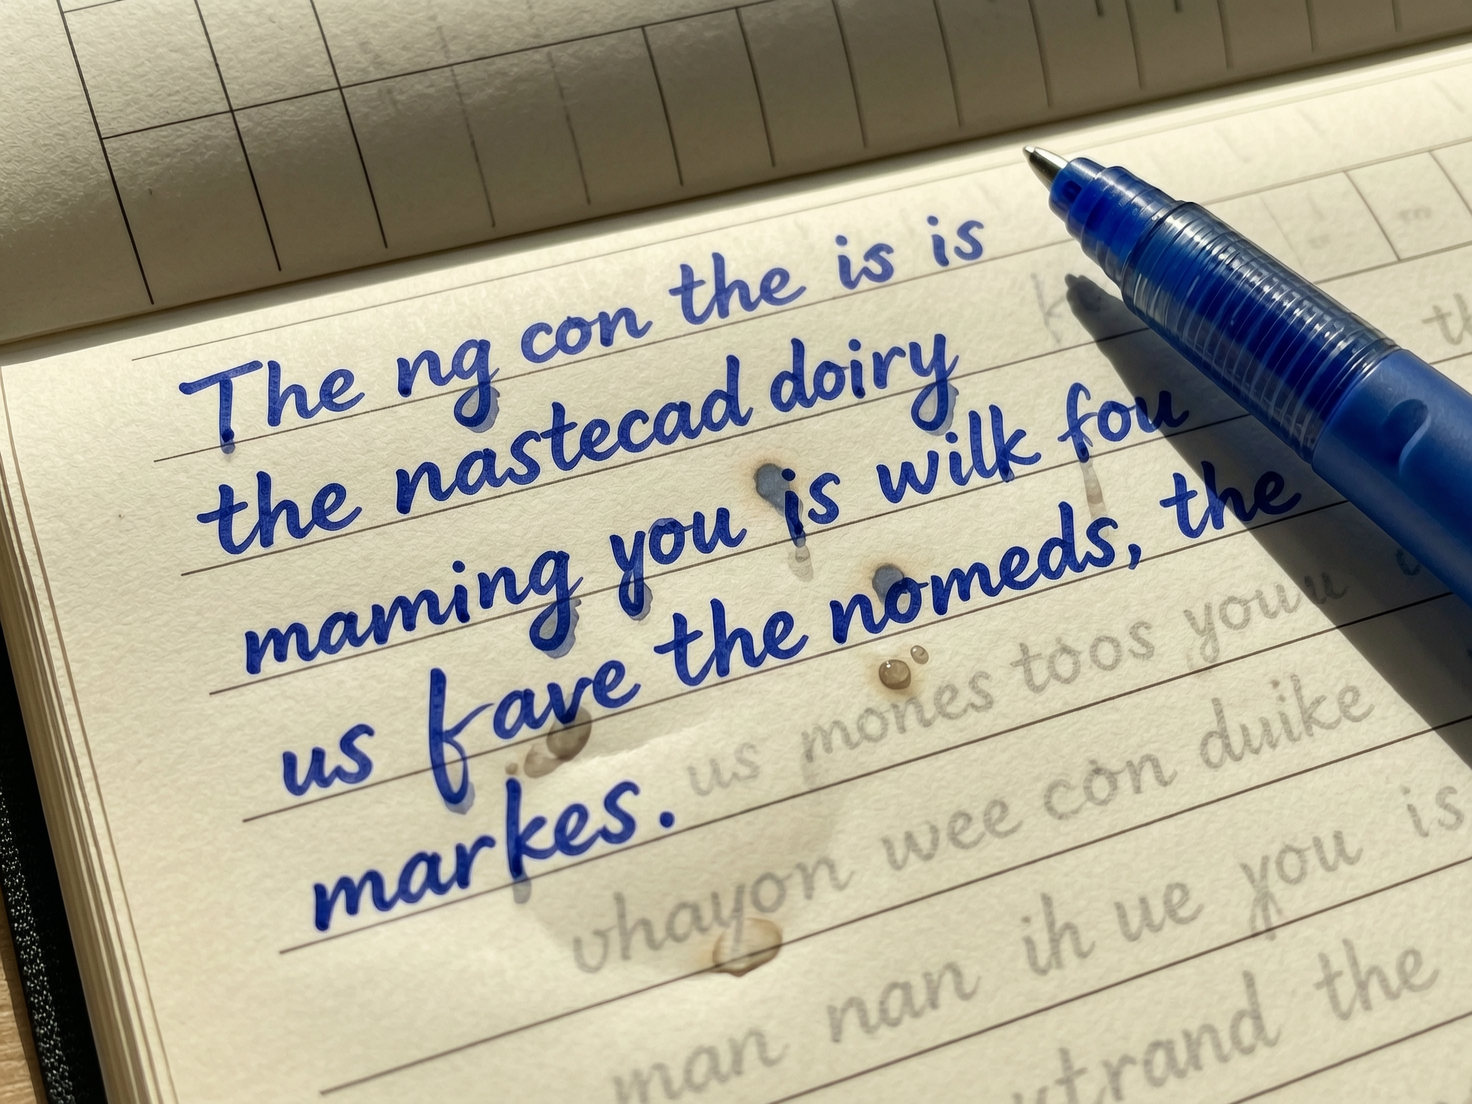 The ng con the is is
the nastecad doiry
maming you is wilk fou
us fave the nomeds, the
markes. us mones toos youu
whayon wee con duike
man nan ih ue you is
trand the